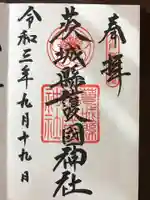 奉拝
茨城縣護國神社
令和三年九月十九日